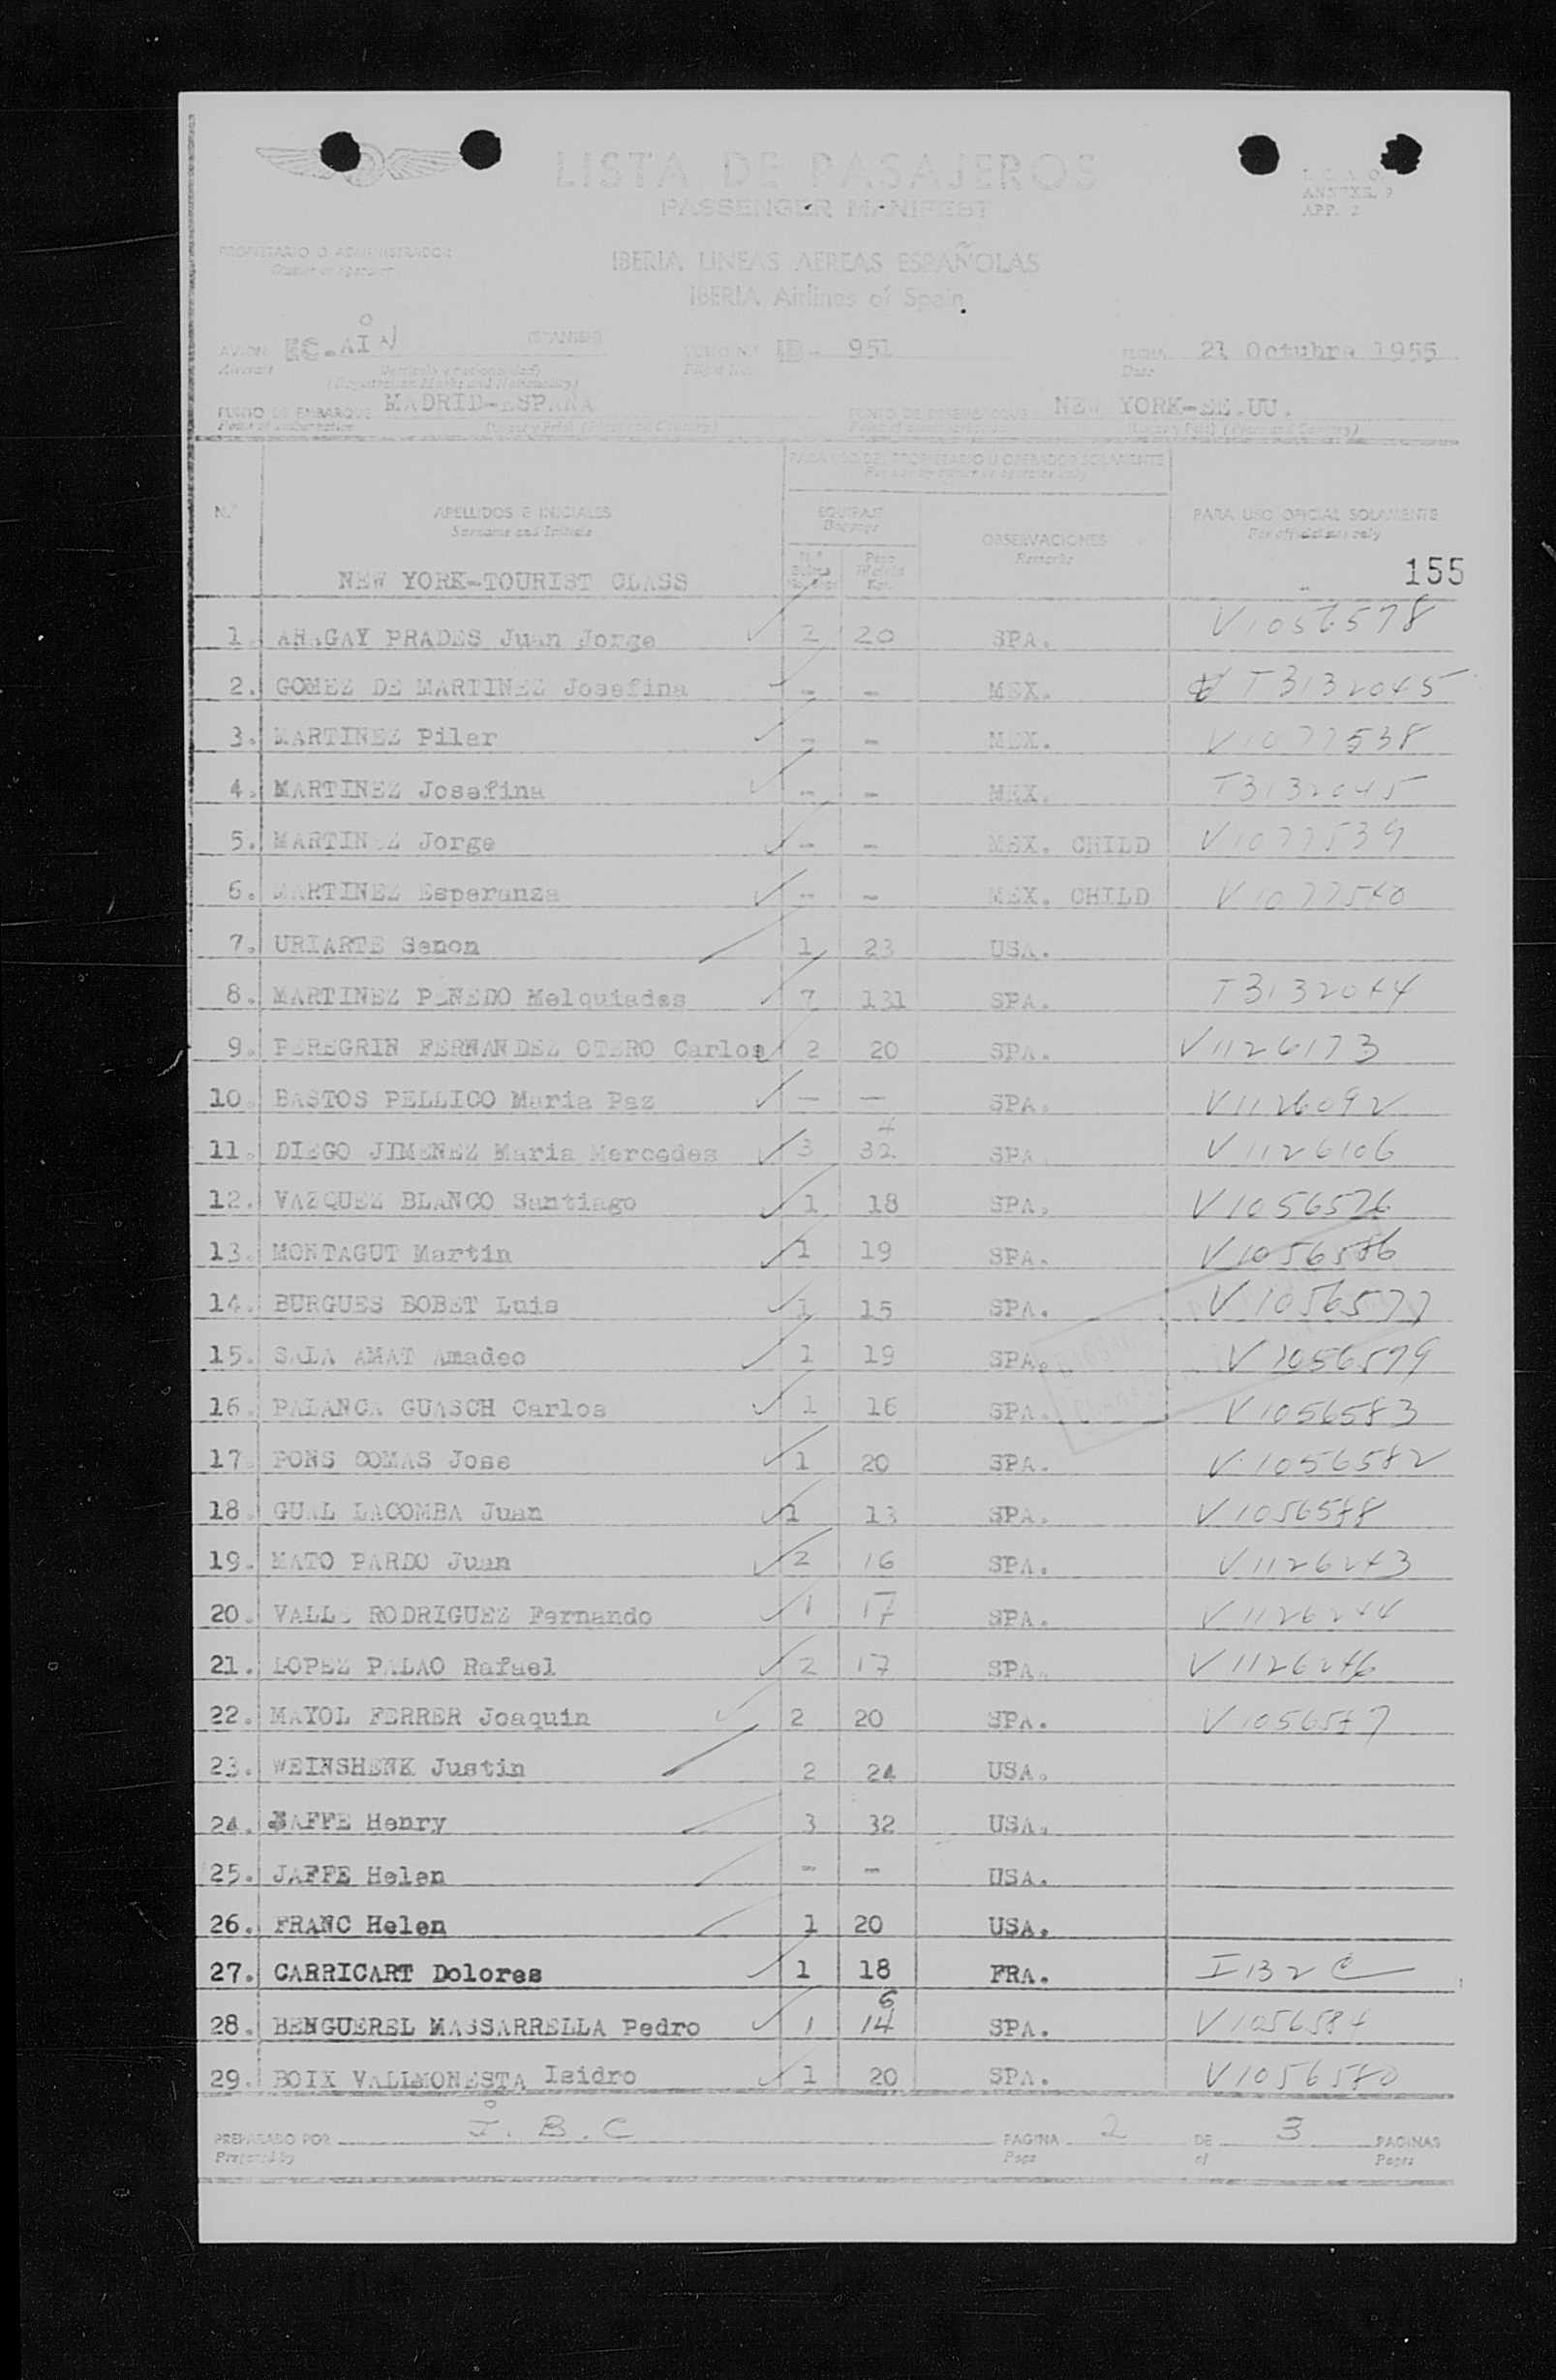 LISTA DE PASAJEROS
PASSENGER MANIFEST
I. C. A. O.
ANNEXE. 9
APP. 2
PROPIETARIO O ADMINISTRADOR
Owner or operator
IBERIA, LINEAS AEREAS ESPAÑOLAS
IBERIA, Airlines of Spain
AVION EC.AIN VUELO N.º IB- 951 FECHA 21 Octubre 1955
Aircraft (Registration Marks and Nationality) Flight No. Date
PUNTO DE EMBARQUE MADRID-ESPAÑA PUNTO DE DESEMBARQUE NEW YORK-EE.UU.
Point of embarkation (Place and Country) (Place and Country)
PARA USO DEL PROPIETARIO U OPERADOR SOLAMENTE
For use by owner or operator only
N.º APELLIDOS E INICIALES EQUIPAJE OBSERVACIONES PARA USO OFICIAL SOLAMENTE
Surname and Initials Baggage Remarks For official use only
N.º Bultos Peso Weight Kgs.
NEW YORK-TOURIST CLASS 155
1. ARAGAY PRADES Juan Jorge 2 20 SPA. V1056578
2. GOMEZ DE MARTINEZ Josefina - - MEX. T3132045
3. MARTINEZ Pilar - - MEX. V1077538
4. MARTINEZ Josefina - - MEX. T3132045
5. MARTINEZ Jorge - - MEX. CHILD V1077539
6. MARTINEZ Esperanza - - MEX. CHILD V1077540
7. URIARTE Senon 1 23 USA.
8. MARTINEZ PENEDO Melquiades 7 131 SPA. T3132044
9. PEREGRIN FERNANDEZ OTERO Carlos 2 20 SPA. V1126173
10. BASTOS PELLICO Maria Paz — — SPA. V1126092
11. DIEGO JIMENEZ Maria Mercedes 3 32 4 SPA. V1126106
12. VAZQUEZ BLANCO Santiago 1 18 SPA. V1056576
13. MONTAGUT Martin 1 19 SPA. V1056586
14. BURGUES BOBET Luis 1 15 SPA. V1056577
15. SALA AMAT Amadeo 1 19 SPA. V1056579
16. PALANCA GUASCH Carlos 1 16 SPA. V1056583
17. PONS COMAS Jose 1 20 SPA. V1056582
18. GUAL LACOMBA Juan 1 13 SPA. V1056588
19. MATO PARDO Juan 2 16 SPA. V1126243
20. VALLE RODRIGUEZ Fernando 1 17 SPA. V1126244
21. LOPEZ PALAO Rafael 2 17 SPA. V1126246
22. MAYOL FERRER Joaquin 2 20 SPA. V1056587
23. WEINSHENK Justin 2 24 USA.
24. JAFFE Henry 3 32 USA.
25. JAFFE Helen - - USA.
26. FRANC Helen 1 20 USA.
27. CARRICART Dolores 1 18 FRA. I 132 C
28. BENGUEREL MASSARRELLA Pedro 1 14 6 SPA. V1056584
29. BOIX VALLMONESTA Isidro 1 20 SPA. V1056580
PREPARADO POR J. B. C PAGINA 2 DE 3 PAGINAS
Prepared by Page of Pages